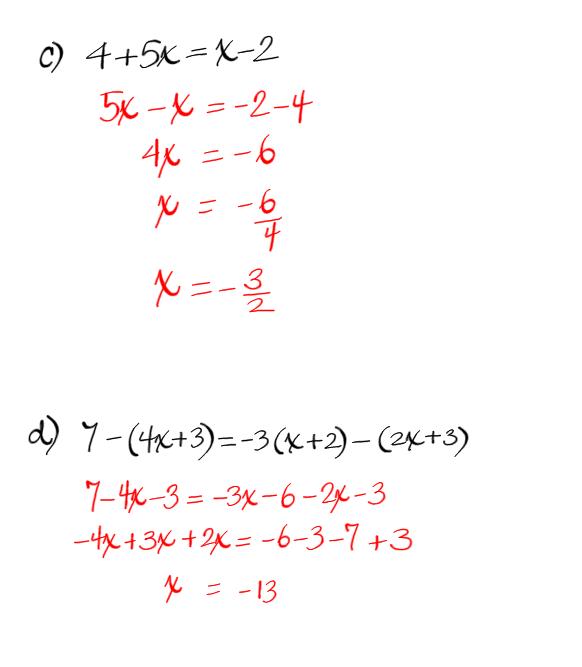 c) 4+5x=x-2
5x-x=-2-4
4x=-6
x=-6/4
x=-3/2
d) 7-(4x+3)=-3(x+2)-(2x+3)
7-4x-3=-3x-6-2x-3
-4x+3x+2x=-6-3-7+3
x=-13